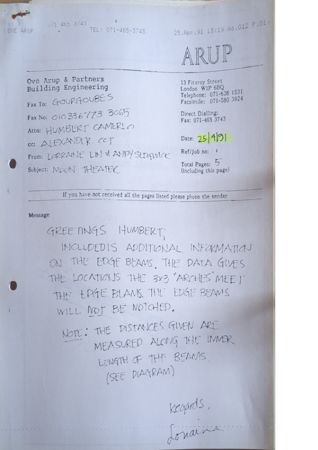 TEL: 071-465-3743
25.Apr.91 15:19 No.012 P.01
OVE ARUP
ARUP
Ove Arup & Partners
Building Engineering
13 Fitzroy Street
London W1P 6BQ
Telephone: 071-636 1531
Facsimile: 071-580 3924
Direct Dialling:
Fax: 071-465 3743
Fax To: GOURGOUBES
Fax No: 010 336773 3065
Attn: HUMBERT CAMERLO
cc: ALEXANDER
From: LORRAINE LIN & ANDY SEDGWICK
Subject: MOON THEATER
Date: 25/4/91
Ref/Job no:
Total Pages: 5
(including this page)
If you have not received all the pages listed please phone the sender
Message
GREETINGS HUMBERT,
INCLUDED IS ADDITIONAL INFORMATION
ON THE EDGE BEAMS. THE DATA GIVES
THE LOCATIONS THE 3x3 "ARCHES" MEET
THE EDGE BEAMS. THE EDGE BEAMS
WILL NOT BE NOTCHED.
NOTE: THE DISTANCES GIVEN ARE
MEASURED ALONG THE INNER
LENGTH OF THE BEAMS
(SEE DIAGRAM)
Regards,
Lorraine